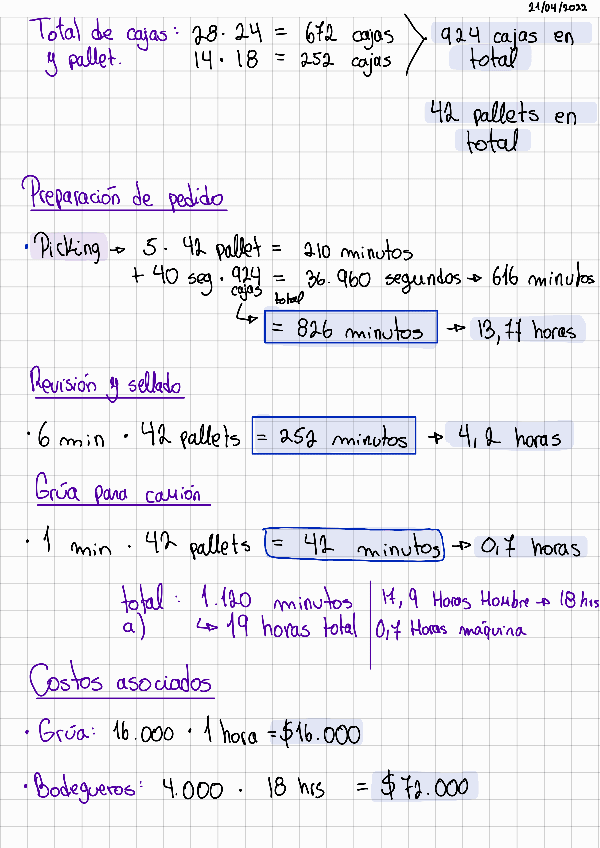 21/04/2022
Total de cajas: 28 · 24 = 672 cajas
y pallet. 14 · 18 = 252 cajas
924 cajas en
total
42 pallets en
total
Preparación de pedido
· Picking → 5 · 42 pallet = 210 minutos
+ 40 seg · 924 = 36.960 segundos → 616 minutos
cajas total
= 826 minutos → 13,77 horas
Revisión y sellado
· 6 min · 42 pallets = 252 minutos → 4,2 horas
Grúa para camión
· 1 min · 42 pallets = 42 minutos → 0,7 horas
total: 1.120 minutos 17,9 Horas Hombre → 18 hrs
a) ↳ 19 horas total 0,7 Horas máquina
Costos asociados
· Grúa: 16.000 · 1 hora = $16.000
· Bodegueros: 4.000 · 18 hrs = $72.000